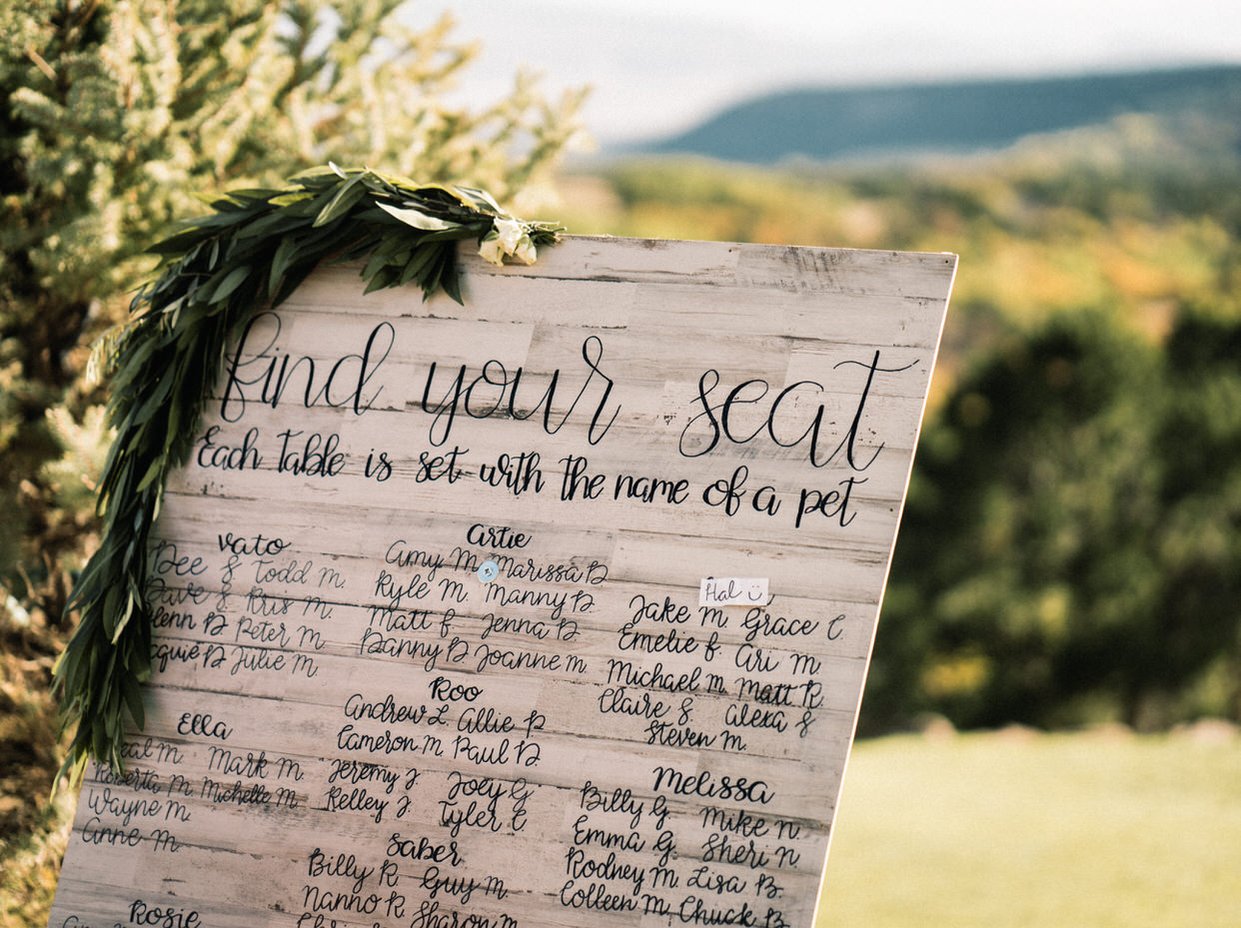 find your seat
Each Table is set with the name of a pet
Vato
Dee & Todd M.
Dave & Kris M.
Glenn B Peter M.
Jacquié B Julie M.
Ella
Neal M. Mark M.
Roberta M. Michelle M.
Wayne M.
Anne M.
Rosie
Artie
Amy M. Marissa B
Kyle M. Manny B.
Matt F. Jenna B
Danny B Joanne M.
Roo
Andrew L. Allie P
Cameron M. Paul B.
Jeremy J. Joey G.
Kelley J. Tyler C
Saber
Billy R. Guy M.
Nanno R Sharon M.
Hal
Jake M. Grace C.
Emelie F Ari M
Michael M. Matt R.
Claire S. Alexa S
Steven M.
Melissa
Billy G. Mike N.
Emma G. Sheri N
Rodney M. Lisa B.
Colleen M. Chuck B